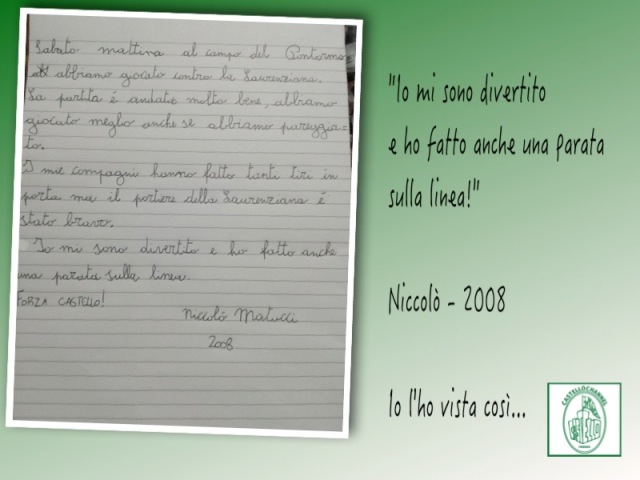 Sabato mattina al campo del Pontormo
abbiamo giocato contro la Laurenziana.
La partita é andata molto bene, abbiamo
giocato meglio anche se abbiamo pareggia-
to.
I miei compagni hanno fatto tanti tiri in
porta ma il portiere della Laurenziana é
stato bravo.
Io mi sono divertito e ho fatto anche
una parata sulla linea.
FORZA CASTELLO!
Niccoló Matucci
2008
"Io mi sono divertito
e ho fatto anche una parata
sulla linea!"
Niccolò - 2008
Io l'ho vista così...
CASTELLOCHANNEL